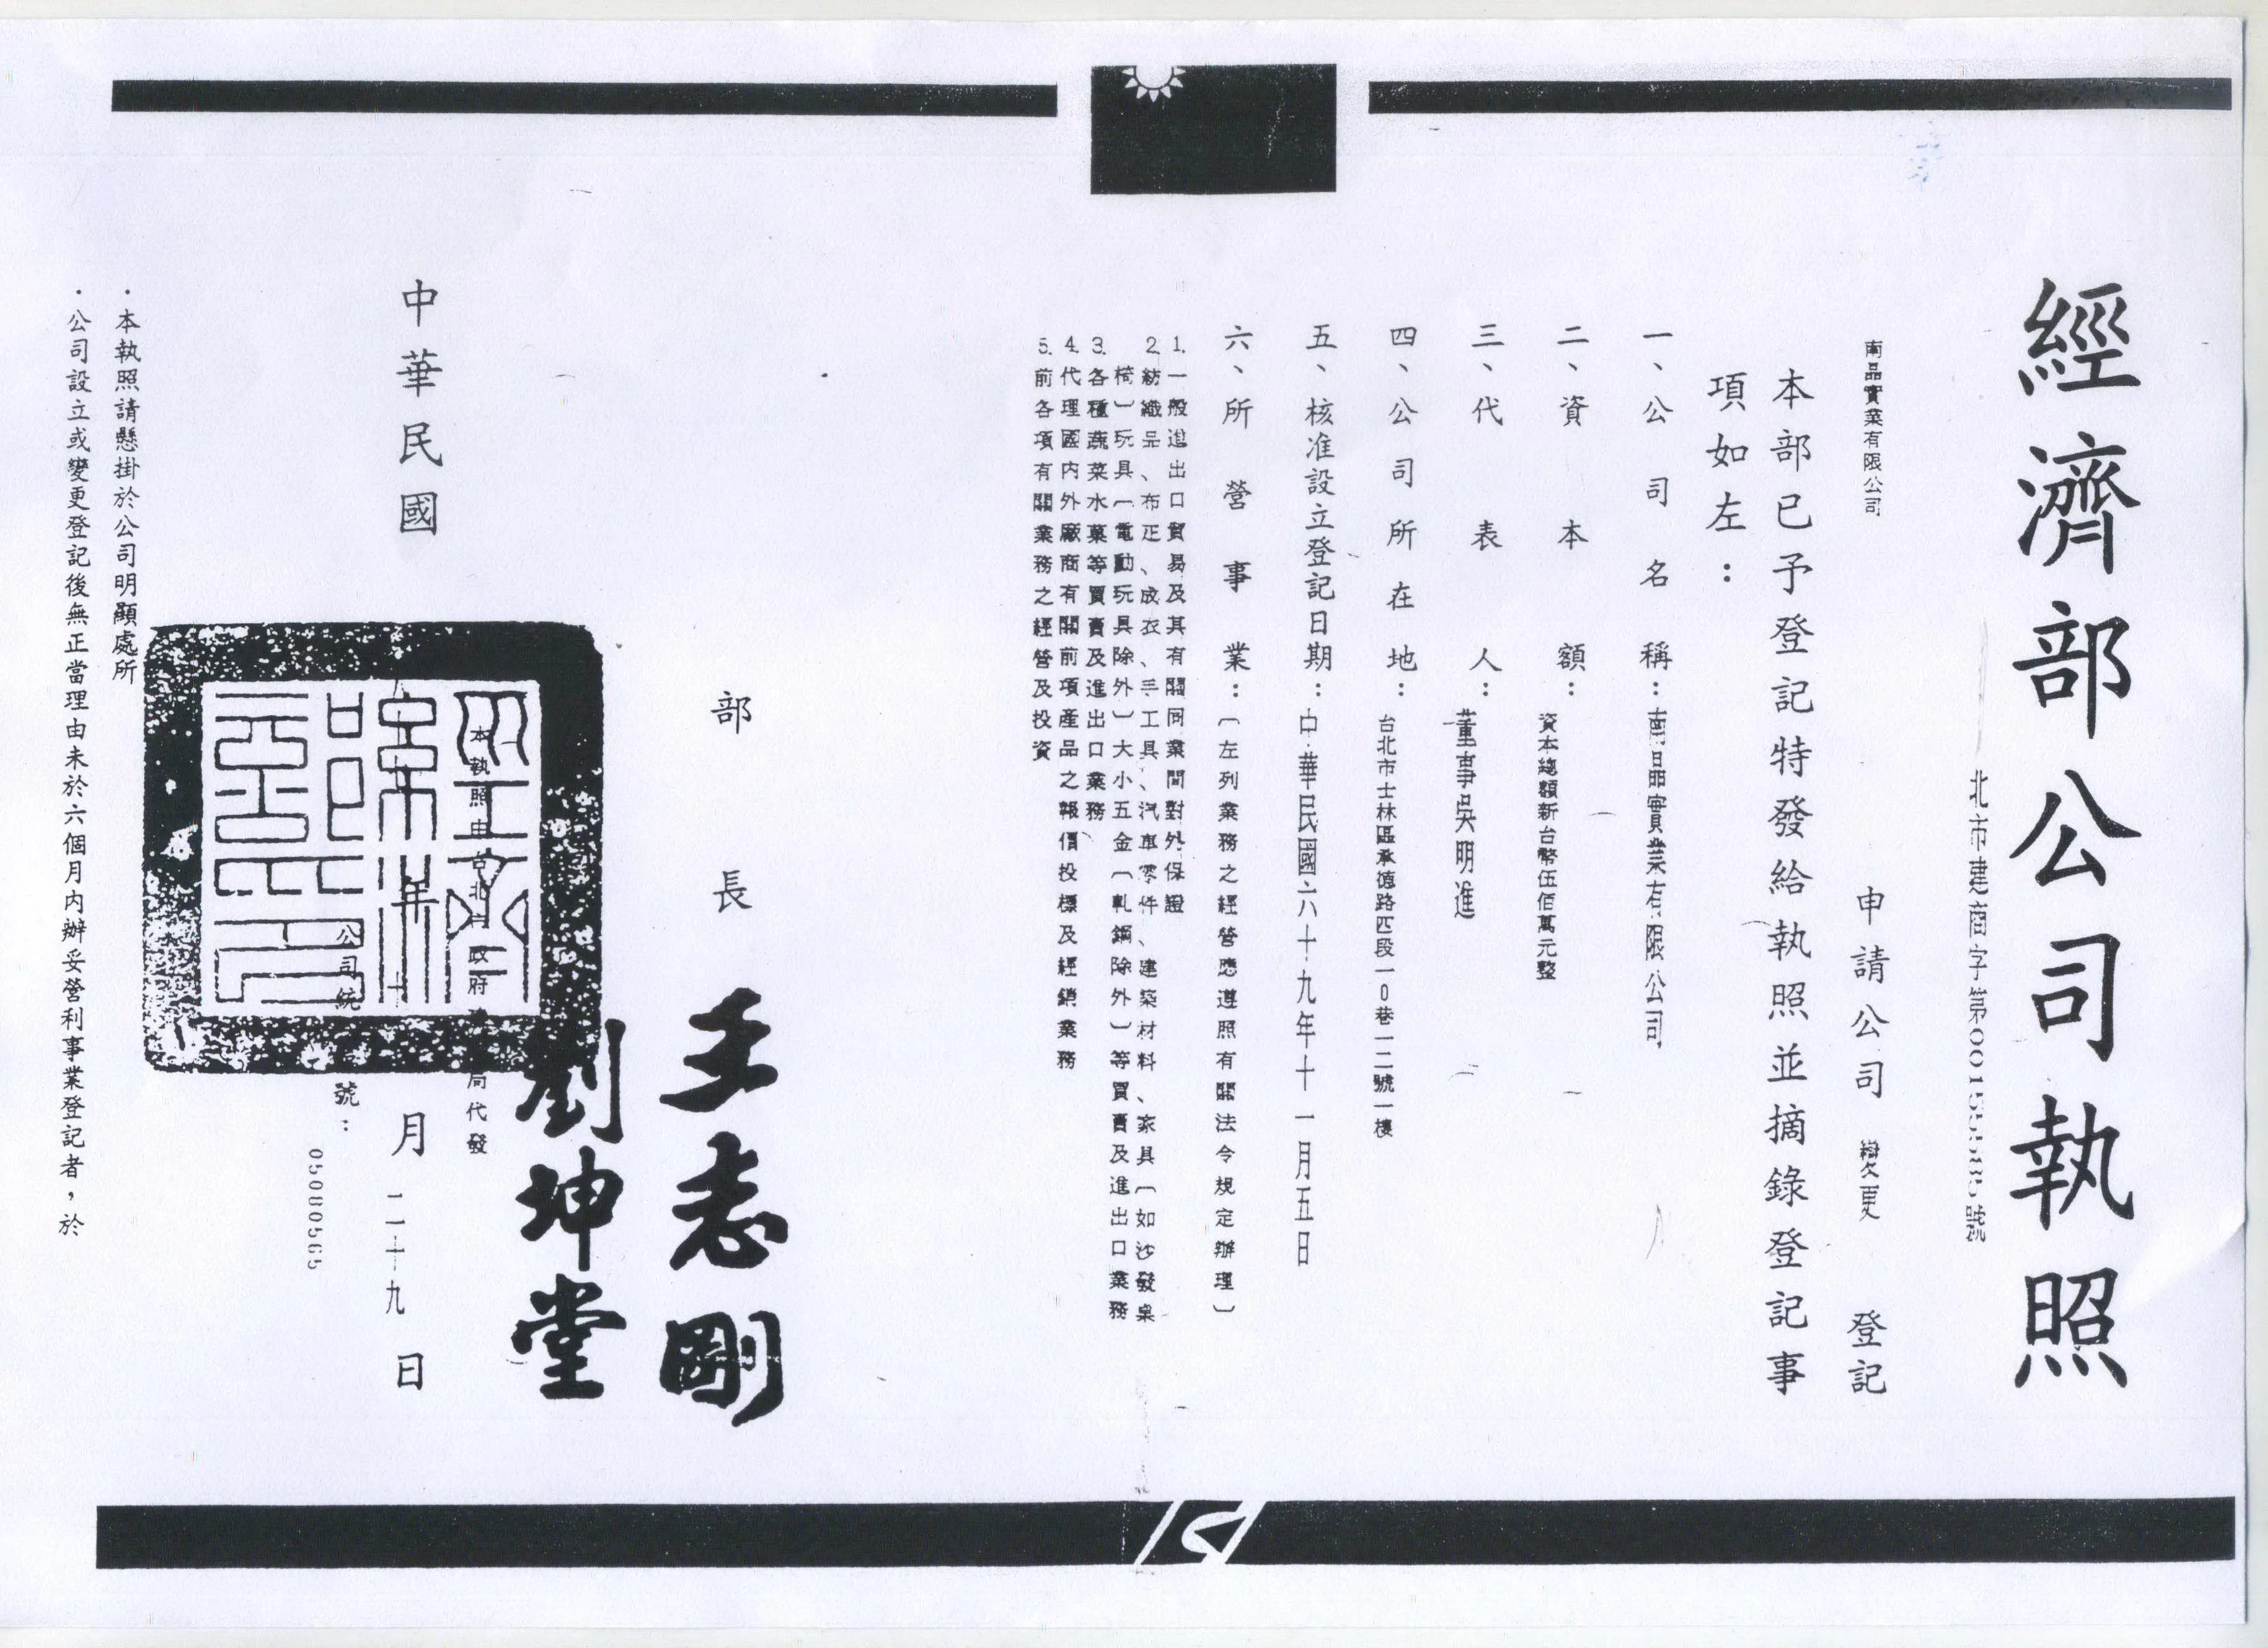 經濟部公司執照
北市建商字第00155585號
南晶實業有限公司
申請公司變更登記
本部已予登記特發給執照並摘錄登記事
項如左：
一、公司名稱：南晶實業有限公司
二、資本額：資本總額新台幣伍佰萬元整
三、代表人：董事吳明進
四、公司所在地：台北市士林區承德路四段一0巷一二號一樓
五、核准設立登記日期：中華民國六十九年十一月五日
六、所營事業：〔左列業務之經營應遵照有關法令規定辦理〕
1.一般進出口貿易及其有關同業間對外保證
2.紡織品、布疋、成衣、手工具、汽車零件、建築材料、家具〔如沙發桌
椅〕玩具〔電動玩具除外〕大小五金〔軋鋼除外〕等買賣及進出口業務
3.各種蔬菜水菓等買賣及進出口業務
4.代理國內外廠商有關前項產品之報價投標及經銷業務
5.前各項有關業務之經營及投資
部長 王志剛
劉坤堂
本執照由台北市政府建設局代發
中華民國 年十 月二十九日
公司統 號：
05080565
．本執照請懸掛於公司明顯處所
．公司設立或變更登記後無正當理由未於六個月內辦妥營利事業登記者，於